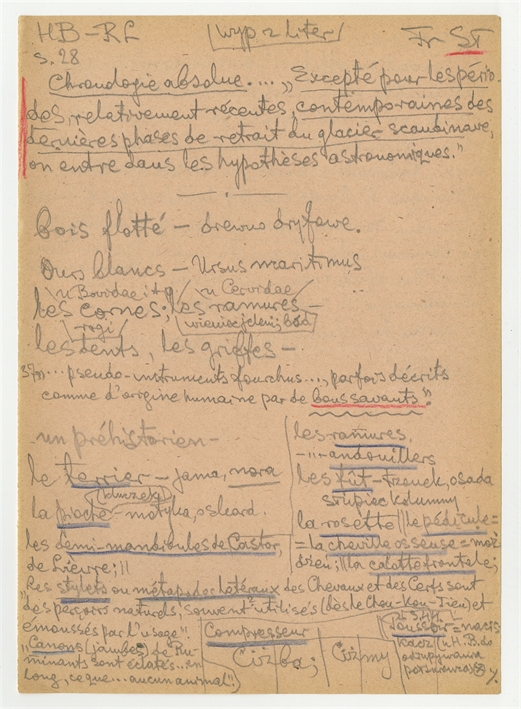 HB-RL [wyp z liter] Fr ST
s. 28
Chronologie absolue.... „Excepté pour les pério-
des, relativement récentes, contemporaines des
dernières phases de retrait du glacier scandinave,
on entre dans les hypothèses astronomiques."
bois flotté – drewno dryfowe.
Ours blancs – Ursus maritimus
u Bovidae i u Cervidae
les cornes; les ramures –
rogi wieniec jeleni,
les dents, les griffes –.
... pseudo-instruments fourchus..., parfois décrits
comme d'origine humaine par de bons savants".
un préhistorien –
le terrier – jama, nora
la pioche – motyka, oskard.
les demi-mandibules de Castor,
de Lièvre; ||
les ramures.
-"- andouillers
les fût – trzonek, osada
słupiec kolumny
la rosette || le pédicule =
= la cheville osseuse = moż-
dżeń; || la calotte frontale;
Les stylets ou métap. des latéraux des Chevaux et des Cerfs sont
„des perçoirs naturels, souvent utilisés (dès le Chou-Kou-Tien) et
émoussés par l'usage".
„Canons (jambes) de Ru-
minants sont éclatés.. en
long, ce que... aucun animal".)
Compresseur
Ciżba; Ciżmy
poussoir = nacis-
kacz u H.B. do